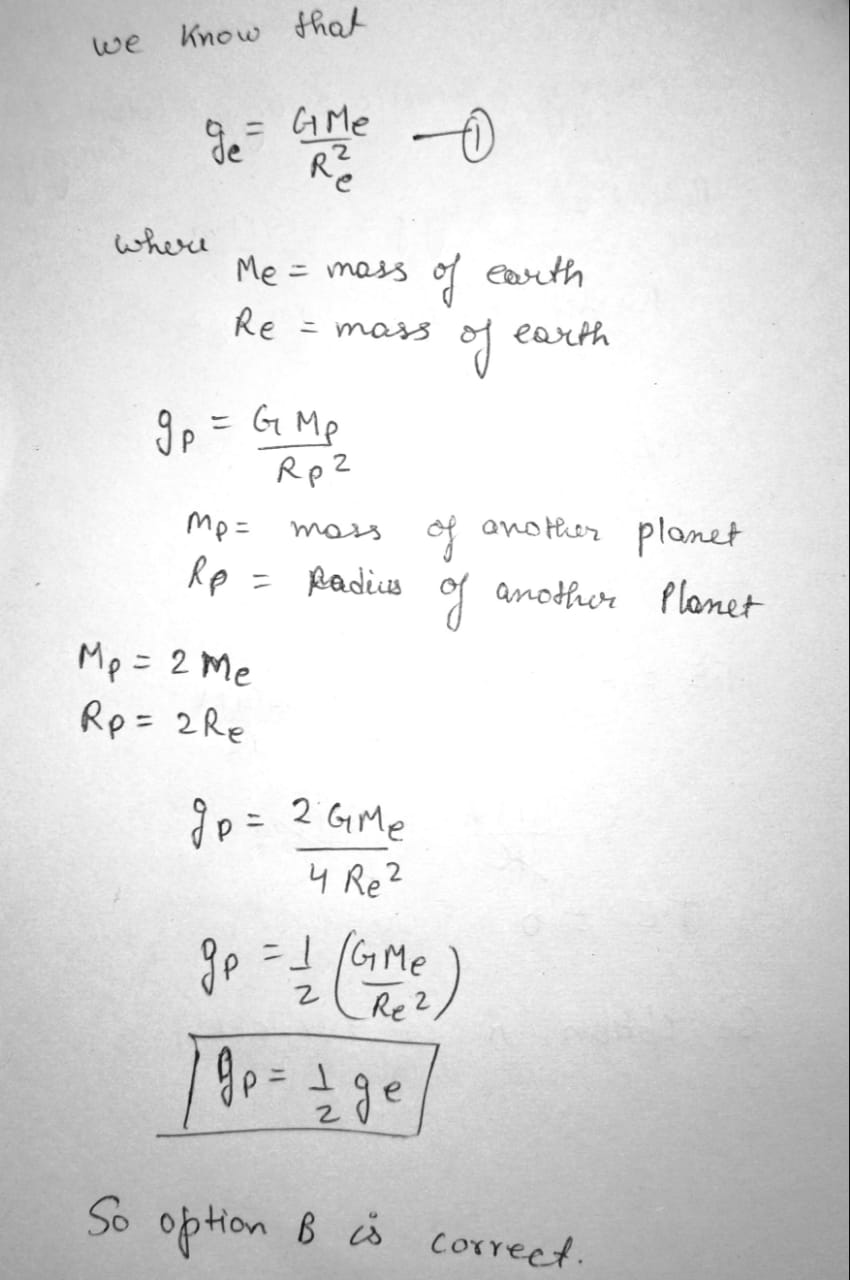 we know that
ge = GMe/Re² —①
where
Me = mass of earth
Re = mass of earth
gp = G Mp/Rp²
Mp = mass of another planet
Rp = Radius of another Planet
Mp = 2 Me
Rp = 2Re
gp = 2 GMe/4 Re²
gp = 1/2 (GMe/Re²)
gp = 1/2 ge
So option B is correct.